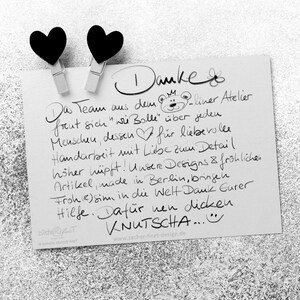 Danke
Das Team aus dem -liner Atelier
freut sich "wie Bolle" über jeden
Menschen, dessen ♡ für liebevolle
Handarbeit mit Liebe zum Detail
höher hüpft! Unsere Designs & fröhliches
Artikel, made in Berlin, bringen
Froh(s)sinn in die Welt. Dank Eurer
Hilfe. Dafür nen dicken
KNUTSCHA...